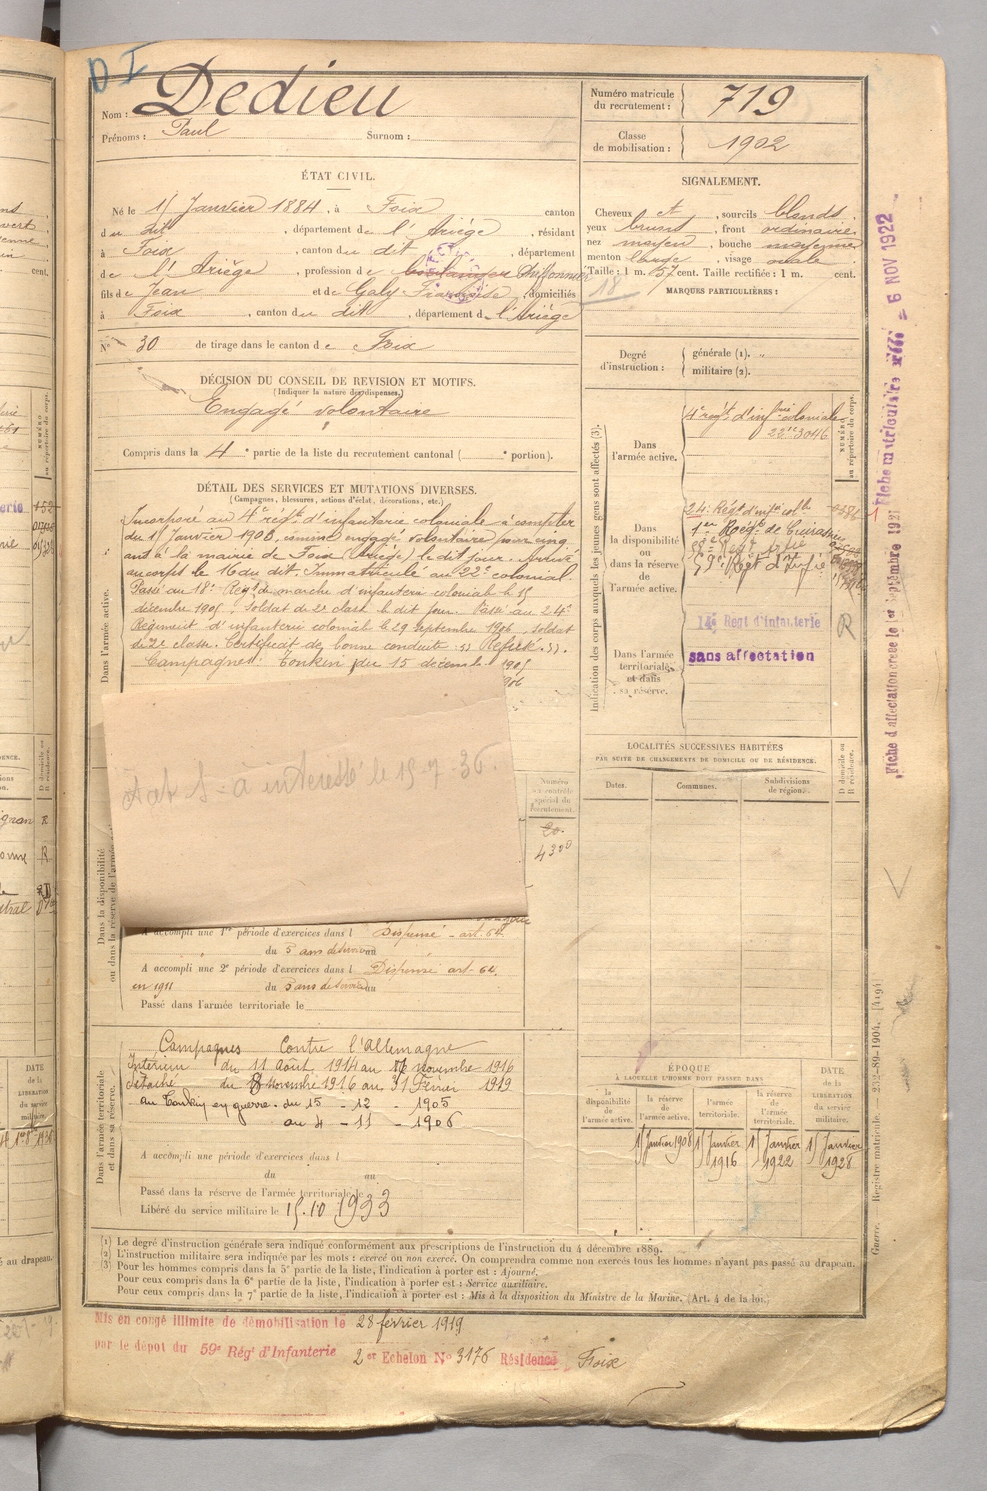 D I
Nom : Dedieu
Prénoms : Paul Surnom :
Numéro matricule du recrutement : 719
Classe de mobilisation : 1902
ÉTAT CIVIL.
Né le 15 Janvier 1884, à Foix canton
du dit, département de l'Ariège, résidant
à Foix, canton du dit, département
de l'Ariège, profession de boulanger Chiffonnier
fils de Jean et de Galy Françoise, domiciliés
à Foix, canton du dit, département de l'Ariège
N° 30 de tirage dans le canton de Foix
SIGNALEMENT.
Cheveux et, sourcils blonds
yeux bruns, front ordinaire
nez moyen, bouche moyenne
menton large, visage ovale
Taille : 1 m. 57 cent. Taille rectifiée : 1 m. cent.
18
MARQUES PARTICULIÈRES :
Degré d'instruction : générale (1). „
militaire (2).
DÉCISION DU CONSEIL DE REVISION ET MOTIFS.
(Indiquer la nature des dispenses.)
Engagé volontaire
Compris dans la 4e partie de la liste du recrutement cantonal ( e portion).
DÉTAIL DES SERVICES ET MUTATIONS DIVERSES.
(Campagnes, blessures, actions d'éclat, décorations, etc.)
Dans l'armée active.
Incorporé au 4e régt d'infanterie coloniale à compter
du 15 Janvier 1903, comme engagé volontaire pour cinq
ans à la mairie de Foix (Ariège) le dit jour. Arrivé
au corps le 16 du dit. Immatriculé au 22e colonial.
Passé au 18e Régt de marche d'infanterie coloniale le 15
décembre 1905. Soldat de 2e classe le dit jour. Passé au 24e
Régiment d'infanterie coloniale le 29 Septembre 1906, soldat
de 2e classe. Certificat de bonne conduite "Refusé."
Campagnes : Tonkin du 15 décembre 1905
à interessé le 15-9-36.
Numéro au contrôle spécial du recrutement.
4300
Dans la disponibilité ou dans la réserve de l'armée
A accompli une 1re période d'exercices dans l Dispensé - art. 64
du 5 ans de service au
A accompli une 2e période d'exercices dans l Dispensé art. 64
en 1911 du 5 ans de service au
Passé dans l'armée territoriale le
Dans l'armée territoriale et dans sa réserve.
Campagnes Contre l'Allemagne
Intérieur du 11 Août 1914 au 7 novembre 1916
détaché du 8 Novembre 1916 au 31 Février 1919
au Tonkin en guerre. du 15 - 12 - 1905
au 4 - 11 - 1906
A accompli une période d'exercices dans l
du au
Passé dans la réserve de l'armée territoriale le
Libéré du service militaire le 15.10 1933
Indication des corps auxquels les jeunes gens sont affectés (3).
NUMÉRO au répertoire du corps.
Dans l'armée active.
4e régt d'infrie coloniale
22e 3046
Dans la disponibilité ou dans la réserve de l'armée active.
24e Régt d'infie colle
1er Régt de Cuirassiers
59e Régt d'Infie
14e Regt d'Infanterie R
Dans l'armée territoriale et dans sa réserve.
sans affectation
LOCALITÉS SUCCESSIVES HABITÉES
PAR SUITE DE CHANGEMENTS DE DOMICILE OU DE RÉSIDENCE.
Dates. Communes. Subdivisions de région. D domicile ou R résidence.
ÉPOQUE
À LAQUELLE L'HOMME DOIT PASSER DANS
la disponibilité de l'armée active. la réserve de l'armée active. l'armée territoriale. la réserve de l'armée territoriale. DATE de la LIBÉRATION du service militaire.
15 Janvier 1908 15 Janvier 1916 15 Janvier 1922 15 Janvier 1928
(1) Le degré d'instruction générale sera indiqué conformément aux prescriptions de l'instruction du 4 décembre 1889.
(2) L'instruction militaire sera indiquée par les mots : exercé ou non exercé. On comprendra comme non exercés tous les hommes n'ayant pas passé au drapeau.
(3) Pour les hommes compris dans la 5e partie de la liste, l'indication à porter est : Ajourné.
Pour ceux compris dans la 6e partie de la liste, l'indication à porter est : Service auxiliaire.
Pour ceux compris dans la 7e partie de la liste, l'indication à porter est : Mis à la disposition du Ministre de la Marine. (Art. 4 de la loi.)
Mis en congé illimité de démobilisation le 28 février 1919
par le dépôt du 59e Régt d'Infanterie 2er Echelon N° 3176 Résidence Foix
Fiche d'affectation créée le 1er Septembre 1921 Fiche matriculaire 6 NOV 1922
Guerre. Registre matricule. — 233-89-1904. [4194]